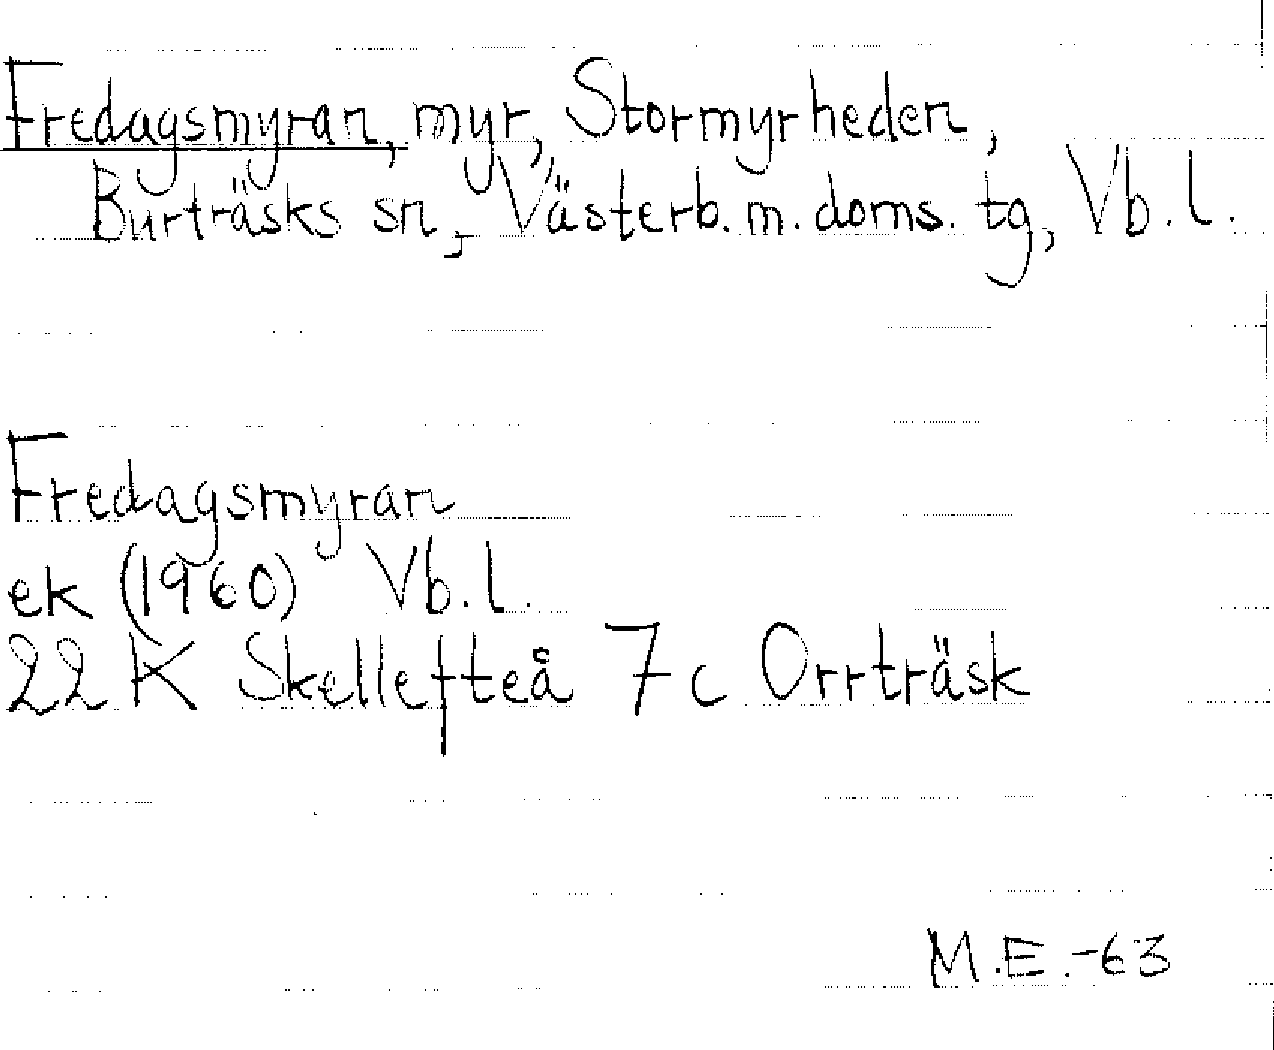 Fredagsmyran, myr, Stormyrheden,
Burträsks sn, Västerb. m. doms. tg, Vb. l.
Fredagsmyran
ek (1960) Vb. l.
22 K Skellefteå 7c Orrträsk
M.E. -63